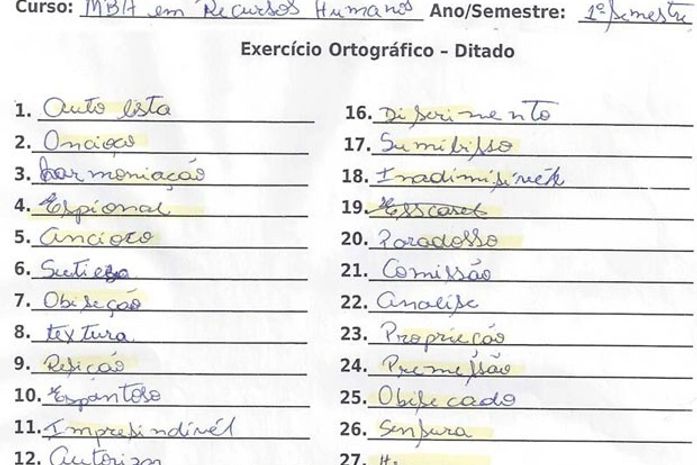 Curso: MBA em Recursos Humanos Ano/Semestre: 1º semestre
Exercício Ortográfico – Ditado
1. Auto lista
2. Oncioço
3. harmoniação
4. Espional
5. ancioto
6. Sutiesa
7. Obiseção
8. textura
9. Resição
10. Espântoso
11. Impresindivél
12. Autorizar
16. Diserimento
17. Sumisisso
18. Inadimisivék
19. Esscaset
20. Paradosso
21. Comissão
22. analise
23. Proprieção
24. Premessão
25. Obisecado
26. Sensura
27.